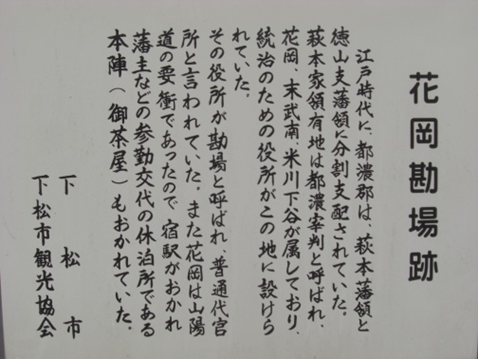 花岡勘場跡
江戸時代に、都濃郡は、萩本藩領と
徳山支藩領に分割支配されていた。
萩本家領有地は都濃宰判と呼ばれ、
花岡、末武南、米川下谷が属しており、
統治のための役所がこの地に設けら
れていた。
その役所が勘場と呼ばれ、普通代官
所と言われていた。また花岡は山陽
道の要衝であったので、宿駅がおかれ
藩主などの参勤交代の休泊所である
本陣(御茶屋)もおかれていた。
下松市
下松市観光協会